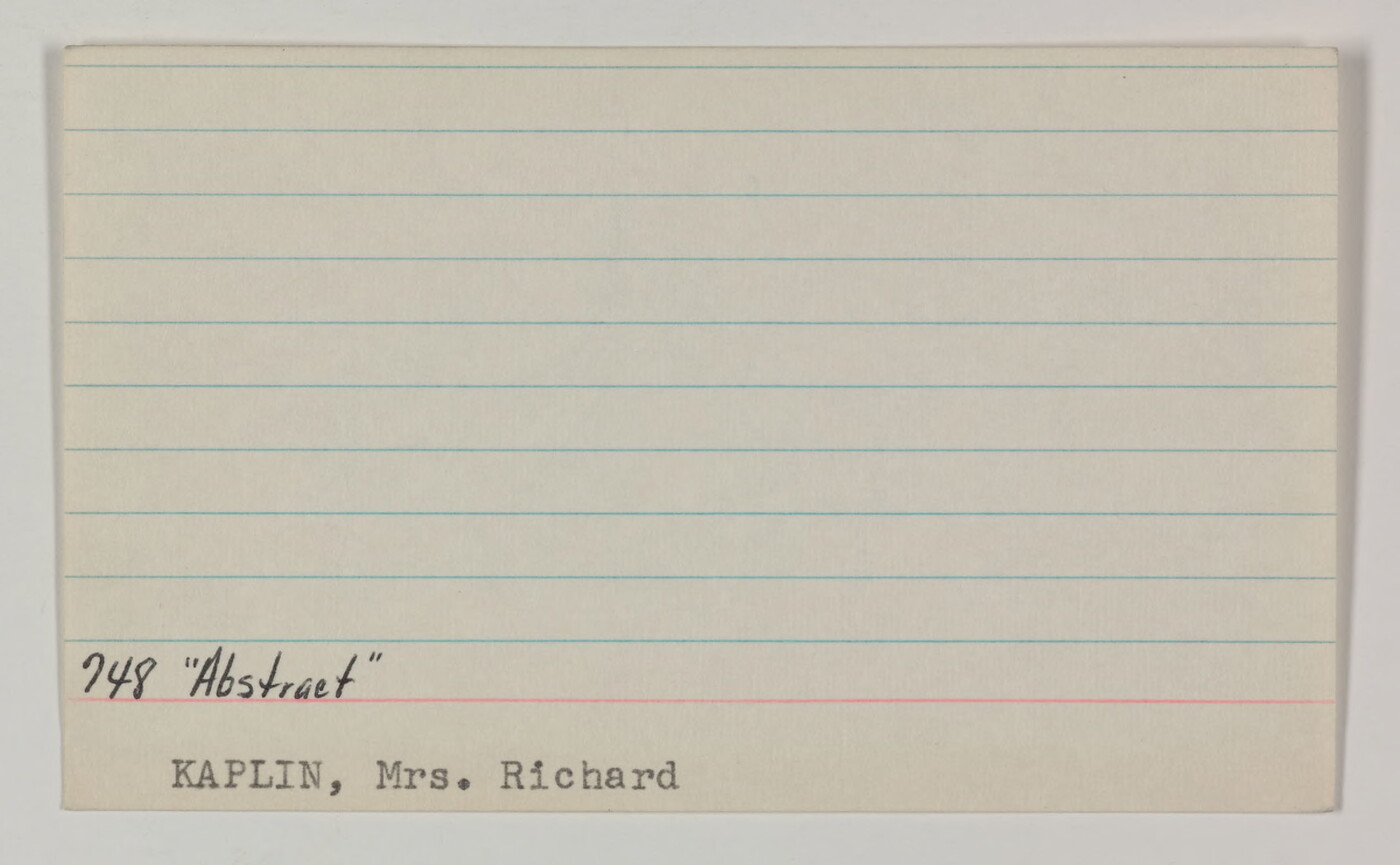 748 "Abstract"
KAPLIN, Mrs. Richard